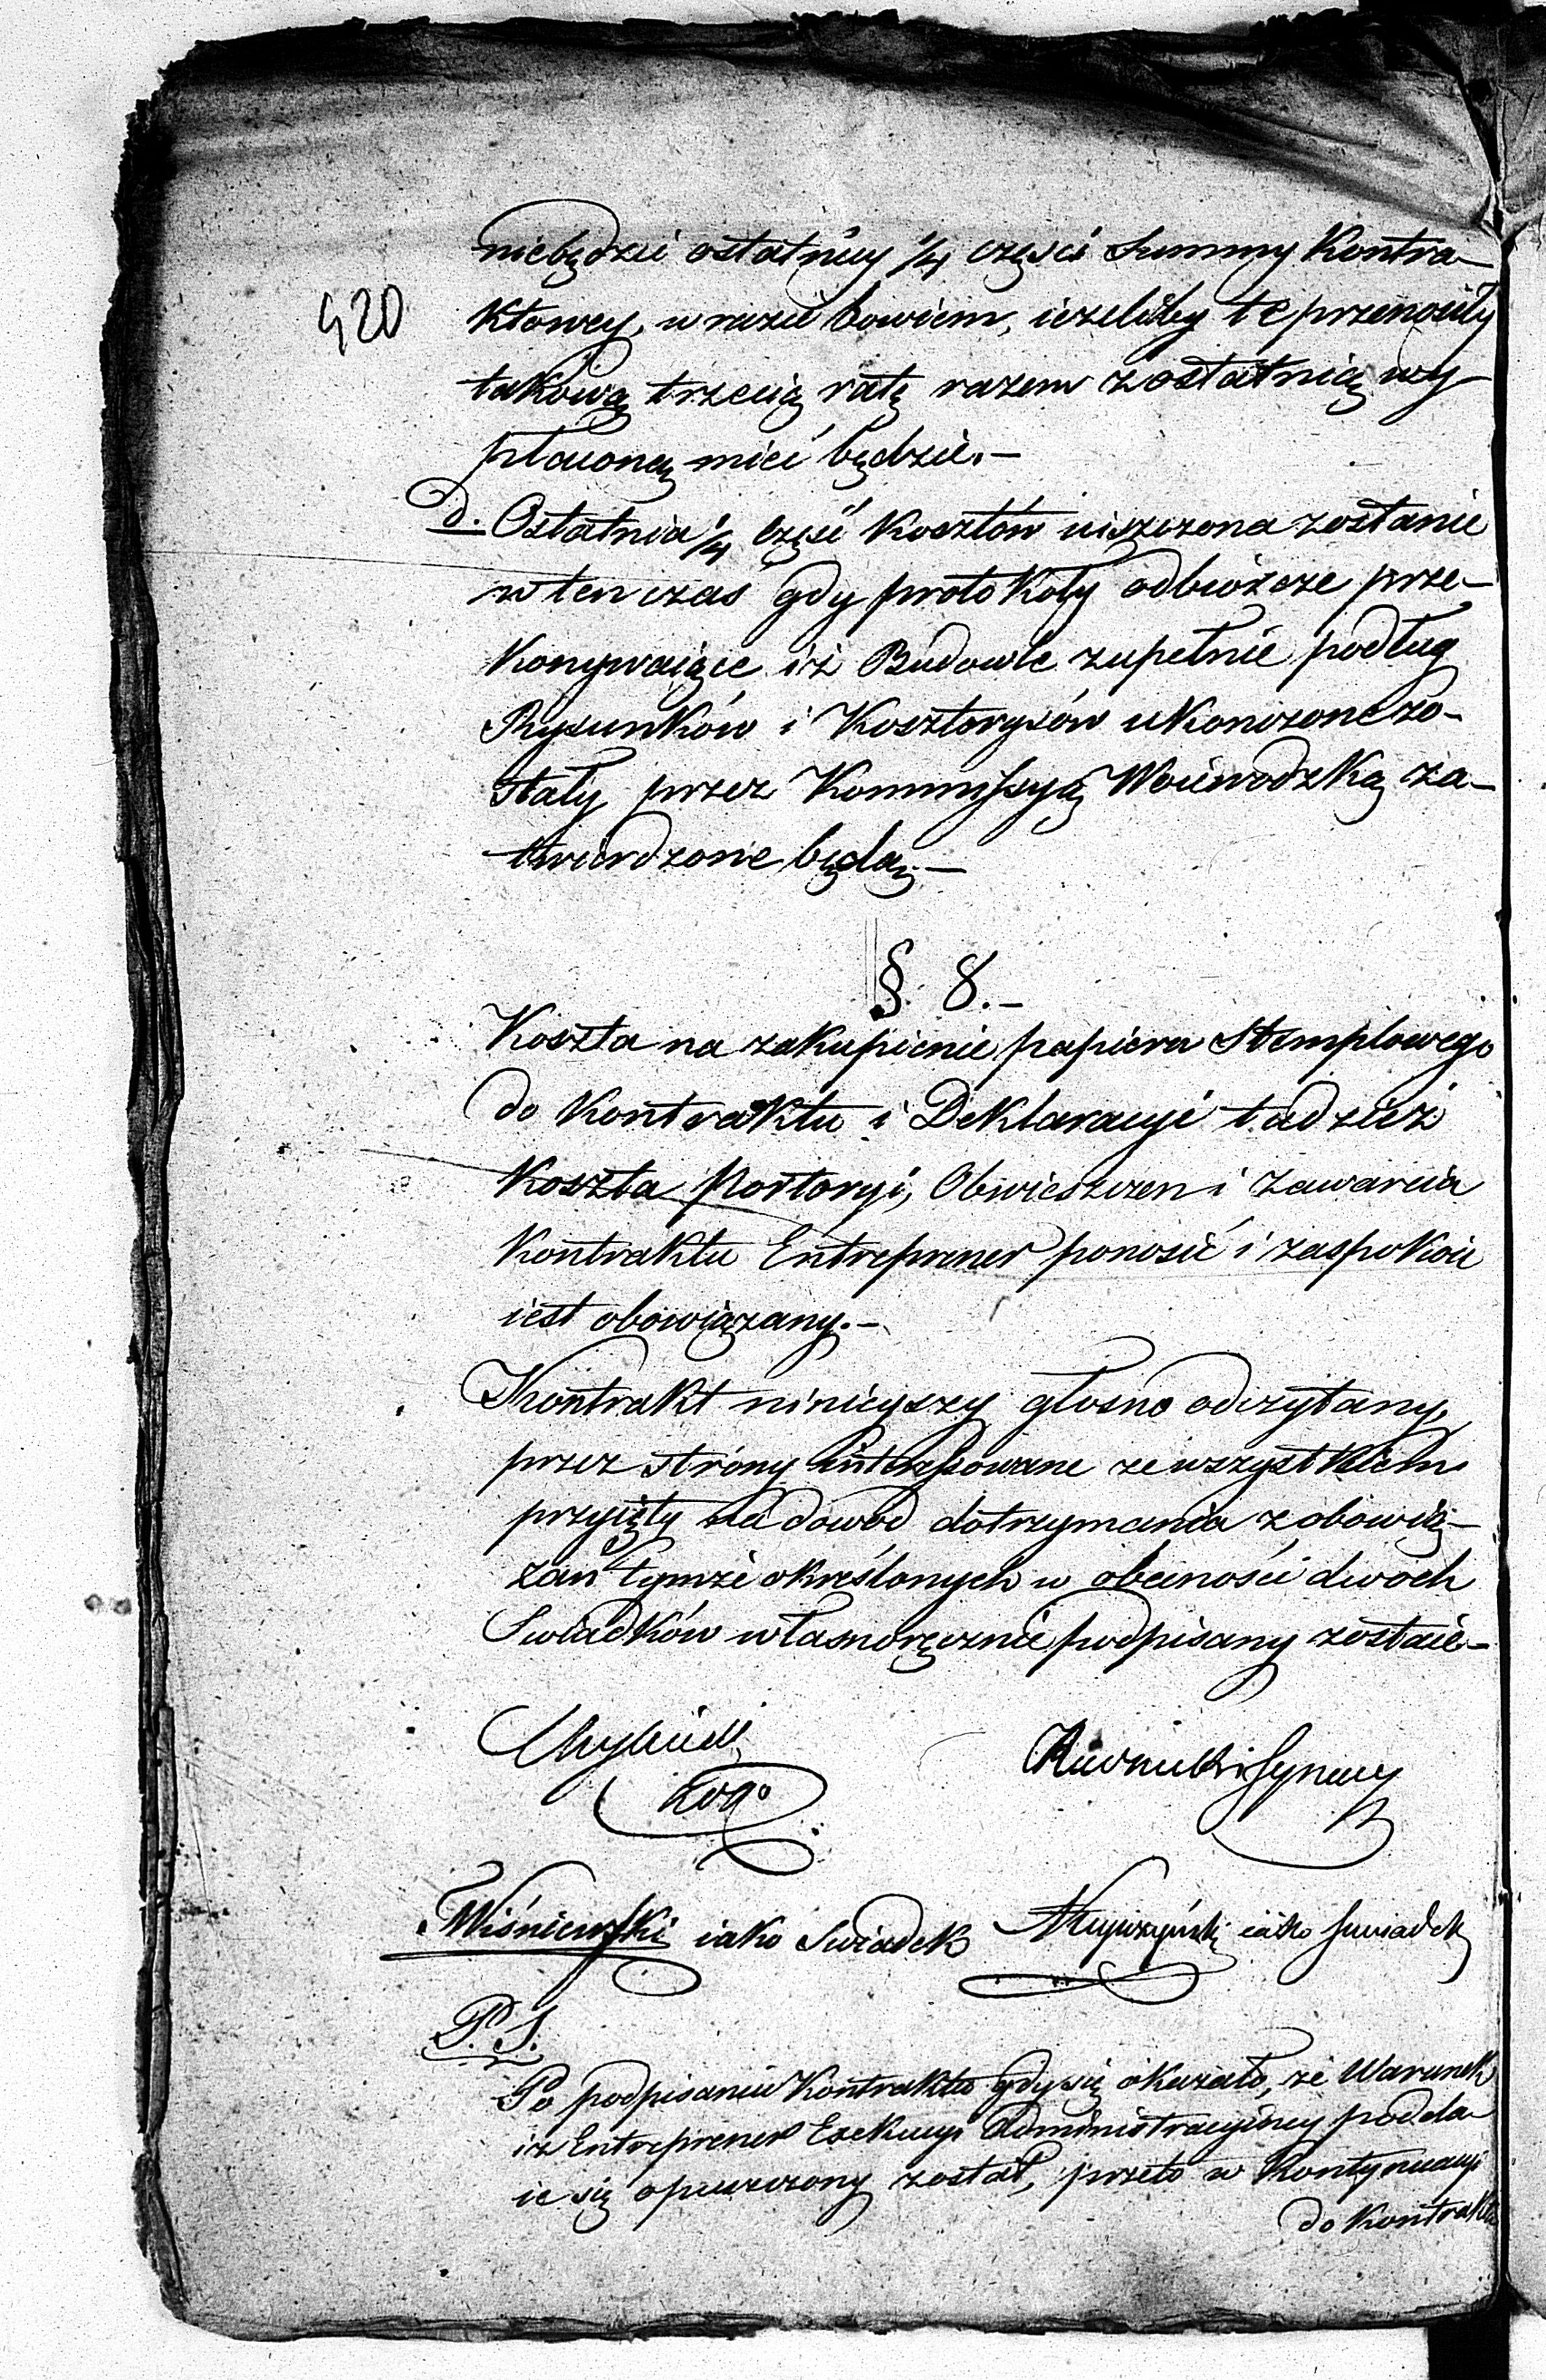 niebędzie ostatniey 1/4 części Summy Kontra-
420
ktowey, w razie bowiem, ieżeliby te przenosiły
takową trzecią ratę razem z ostatnią wy-
płaconą mieć będzie.-
d. Ostatnia 1/4 część Kosztów uiszczona zostanie
w ten czas gdy protokóły odbiorcze prze-
konywaiące iż Budowle zupełnie podług
Rysunków i Kosztorysów ukończone zo-
stały przez Kommissyą Woiewodzką za-
twierdzone będą.-
§. 8.-
Koszta na zakupienie papieru Stemplowego
do Kontraktu i Deklaracyi tudzież
Koszta Portoryi, Obwieszczeń i Zawarcia
Kontraktu Entreprener ponosić i zaspokoić
iest obowiązany.-
Kontrakt ninieyszy głośno odczytany,
przez strony interessowane ze wszystkiem
przyięty na dowód dotrzymania zobowią-
zań tymże określonych w obecności dwóch
Swiadków własnoręcznie podpisany zostaie.-
Wiśniewski iako Swiadek
iako Swiadek
P. S.
Po podpisaniu Kontraktu gdy się okazało, że Warunek
iż Entreprener Exekucyi Administracyiney podda-
ie się opuszczony został, przeto w Kontynuacyi
do Kontraktu